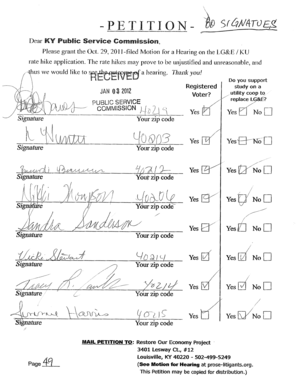 -PETITION- 80 SIGNATUES
Dear KY Public Service Commission,
Please grant the Oct. 29, 2011-filed Motion for a Hearing on the LG&E / KU
rate hike application. The rate hikes may prove to be unjustified and unreasonable, and
thus we would like to see the outcome of a hearing. Thank you!
RECEIVED
JAN 03 2012
PUBLIC SERVICE
COMMISSION
Registered
Voter?
Do you support
study on a
utility coop to
replace LG&E?
40214 Yes Yes No
Signature Your zip code
40903 Yes Yes No
Signature Your zip code
40212 Yes Yes No
Signature Your zip code
Nikki Thompson 40206 Yes Yes No
Signature Your zip code
Sandra Sanderson Yes Yes No
Signature Your zip code
Vicki Stewart 40214 Yes Yes No
Signature Your zip code
Tracy 40214 Yes Yes No
Signature Your zip code
Harris 40115 Yes Yes No
Signature Your zip code
MAIL PETITION TO: Restore Our Economy Project
3401 Lesway Ct., #12
Louisville, KY 40220 - 502-499-5249
Page 49 (See Motion for Hearing at prose-litigants.org.
This Petition may be copied for distribution.)